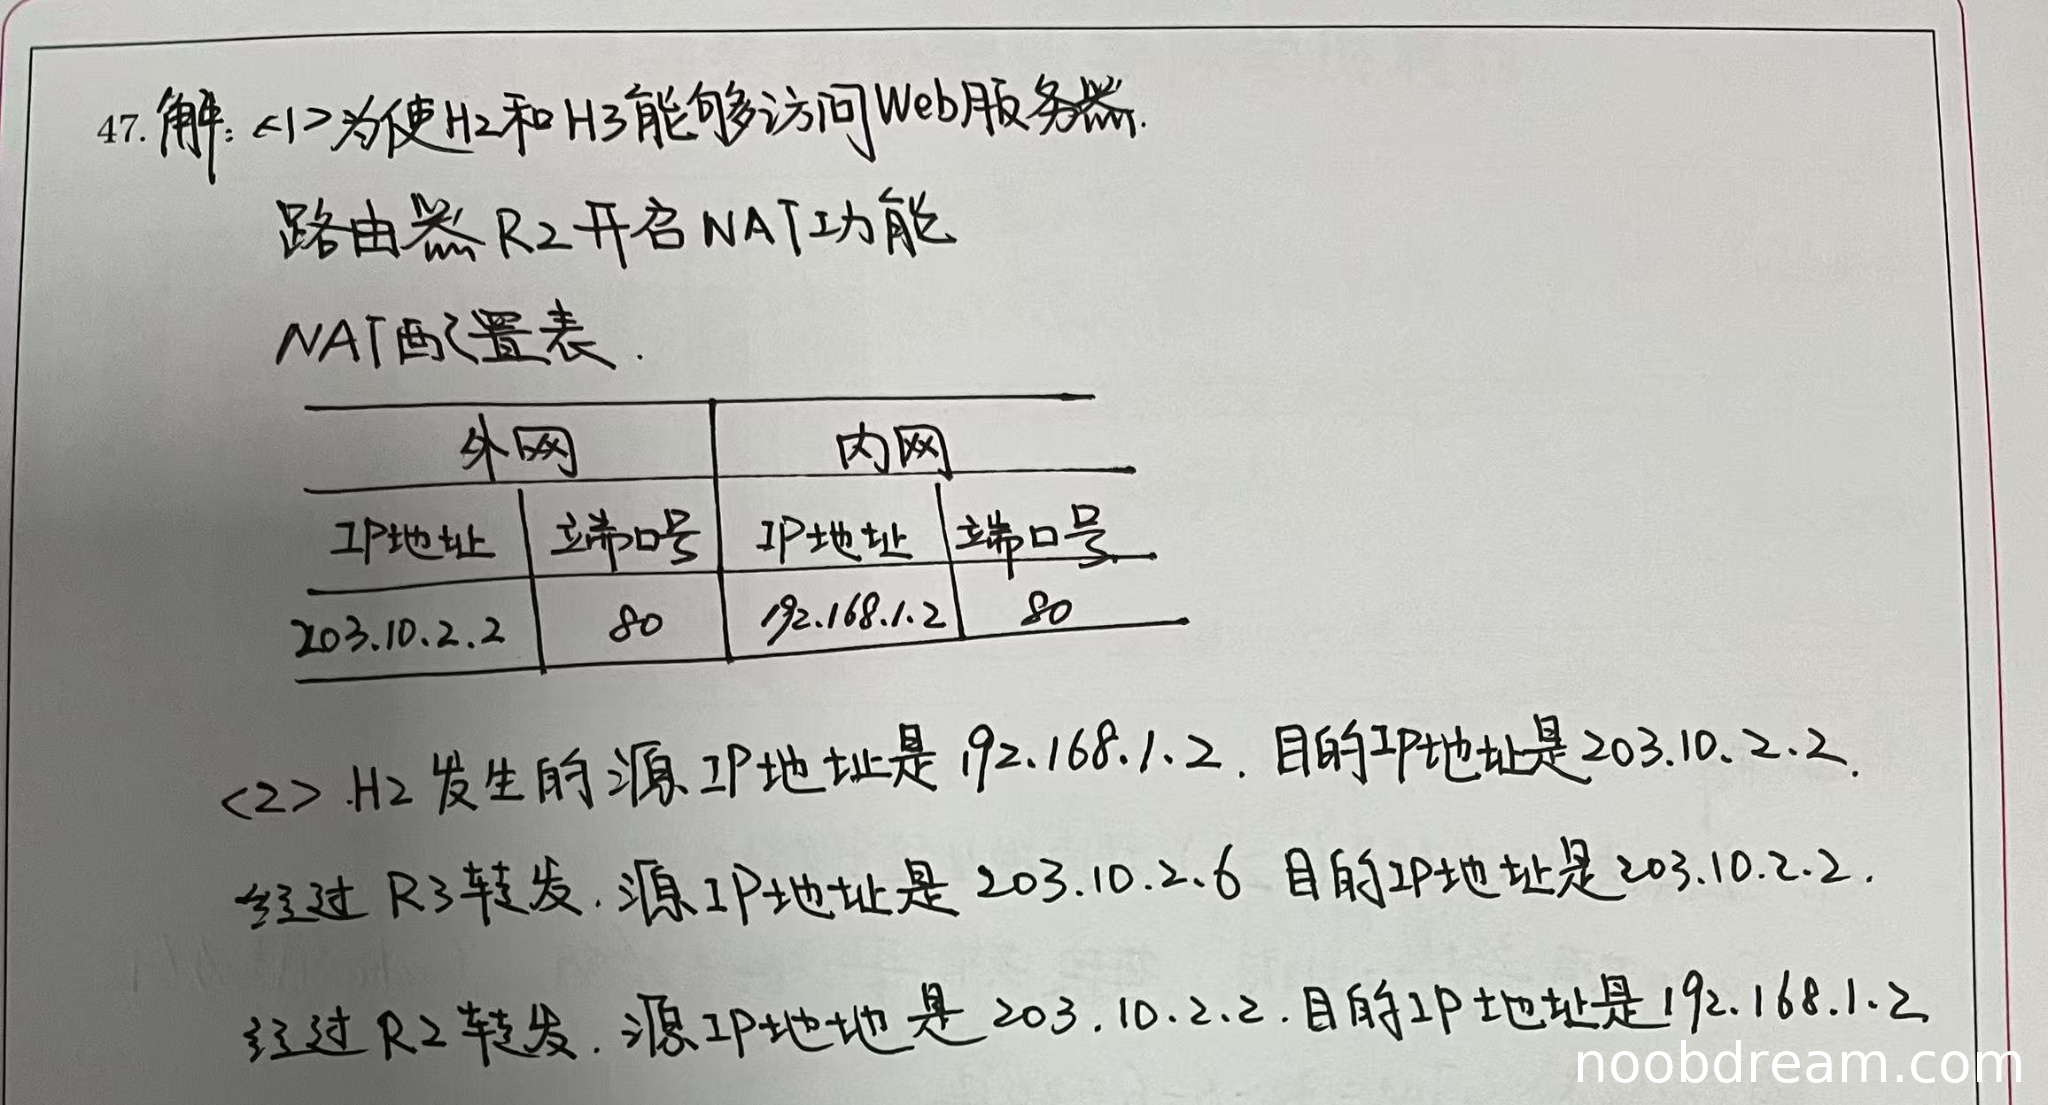 47. 解: <1>为使H2和H3能够访问Web服务器.
路由器R2开启NAT功能
NAT配置表.
外网 内网
IP地址 端口号 IP地址 端口号
203.10.2.2 80 192.168.1.2 80
<2>.H2发生的源IP地址是192.168.1.2. 目的IP地址是203.10.2.2.
经过R3转发.源IP地址是203.10.2.6 目的IP地址是203.10.2.2.
经过R2转发.源IP地地是203.10.2.2.目的IP地址是192.168.1.2
noobdream.com